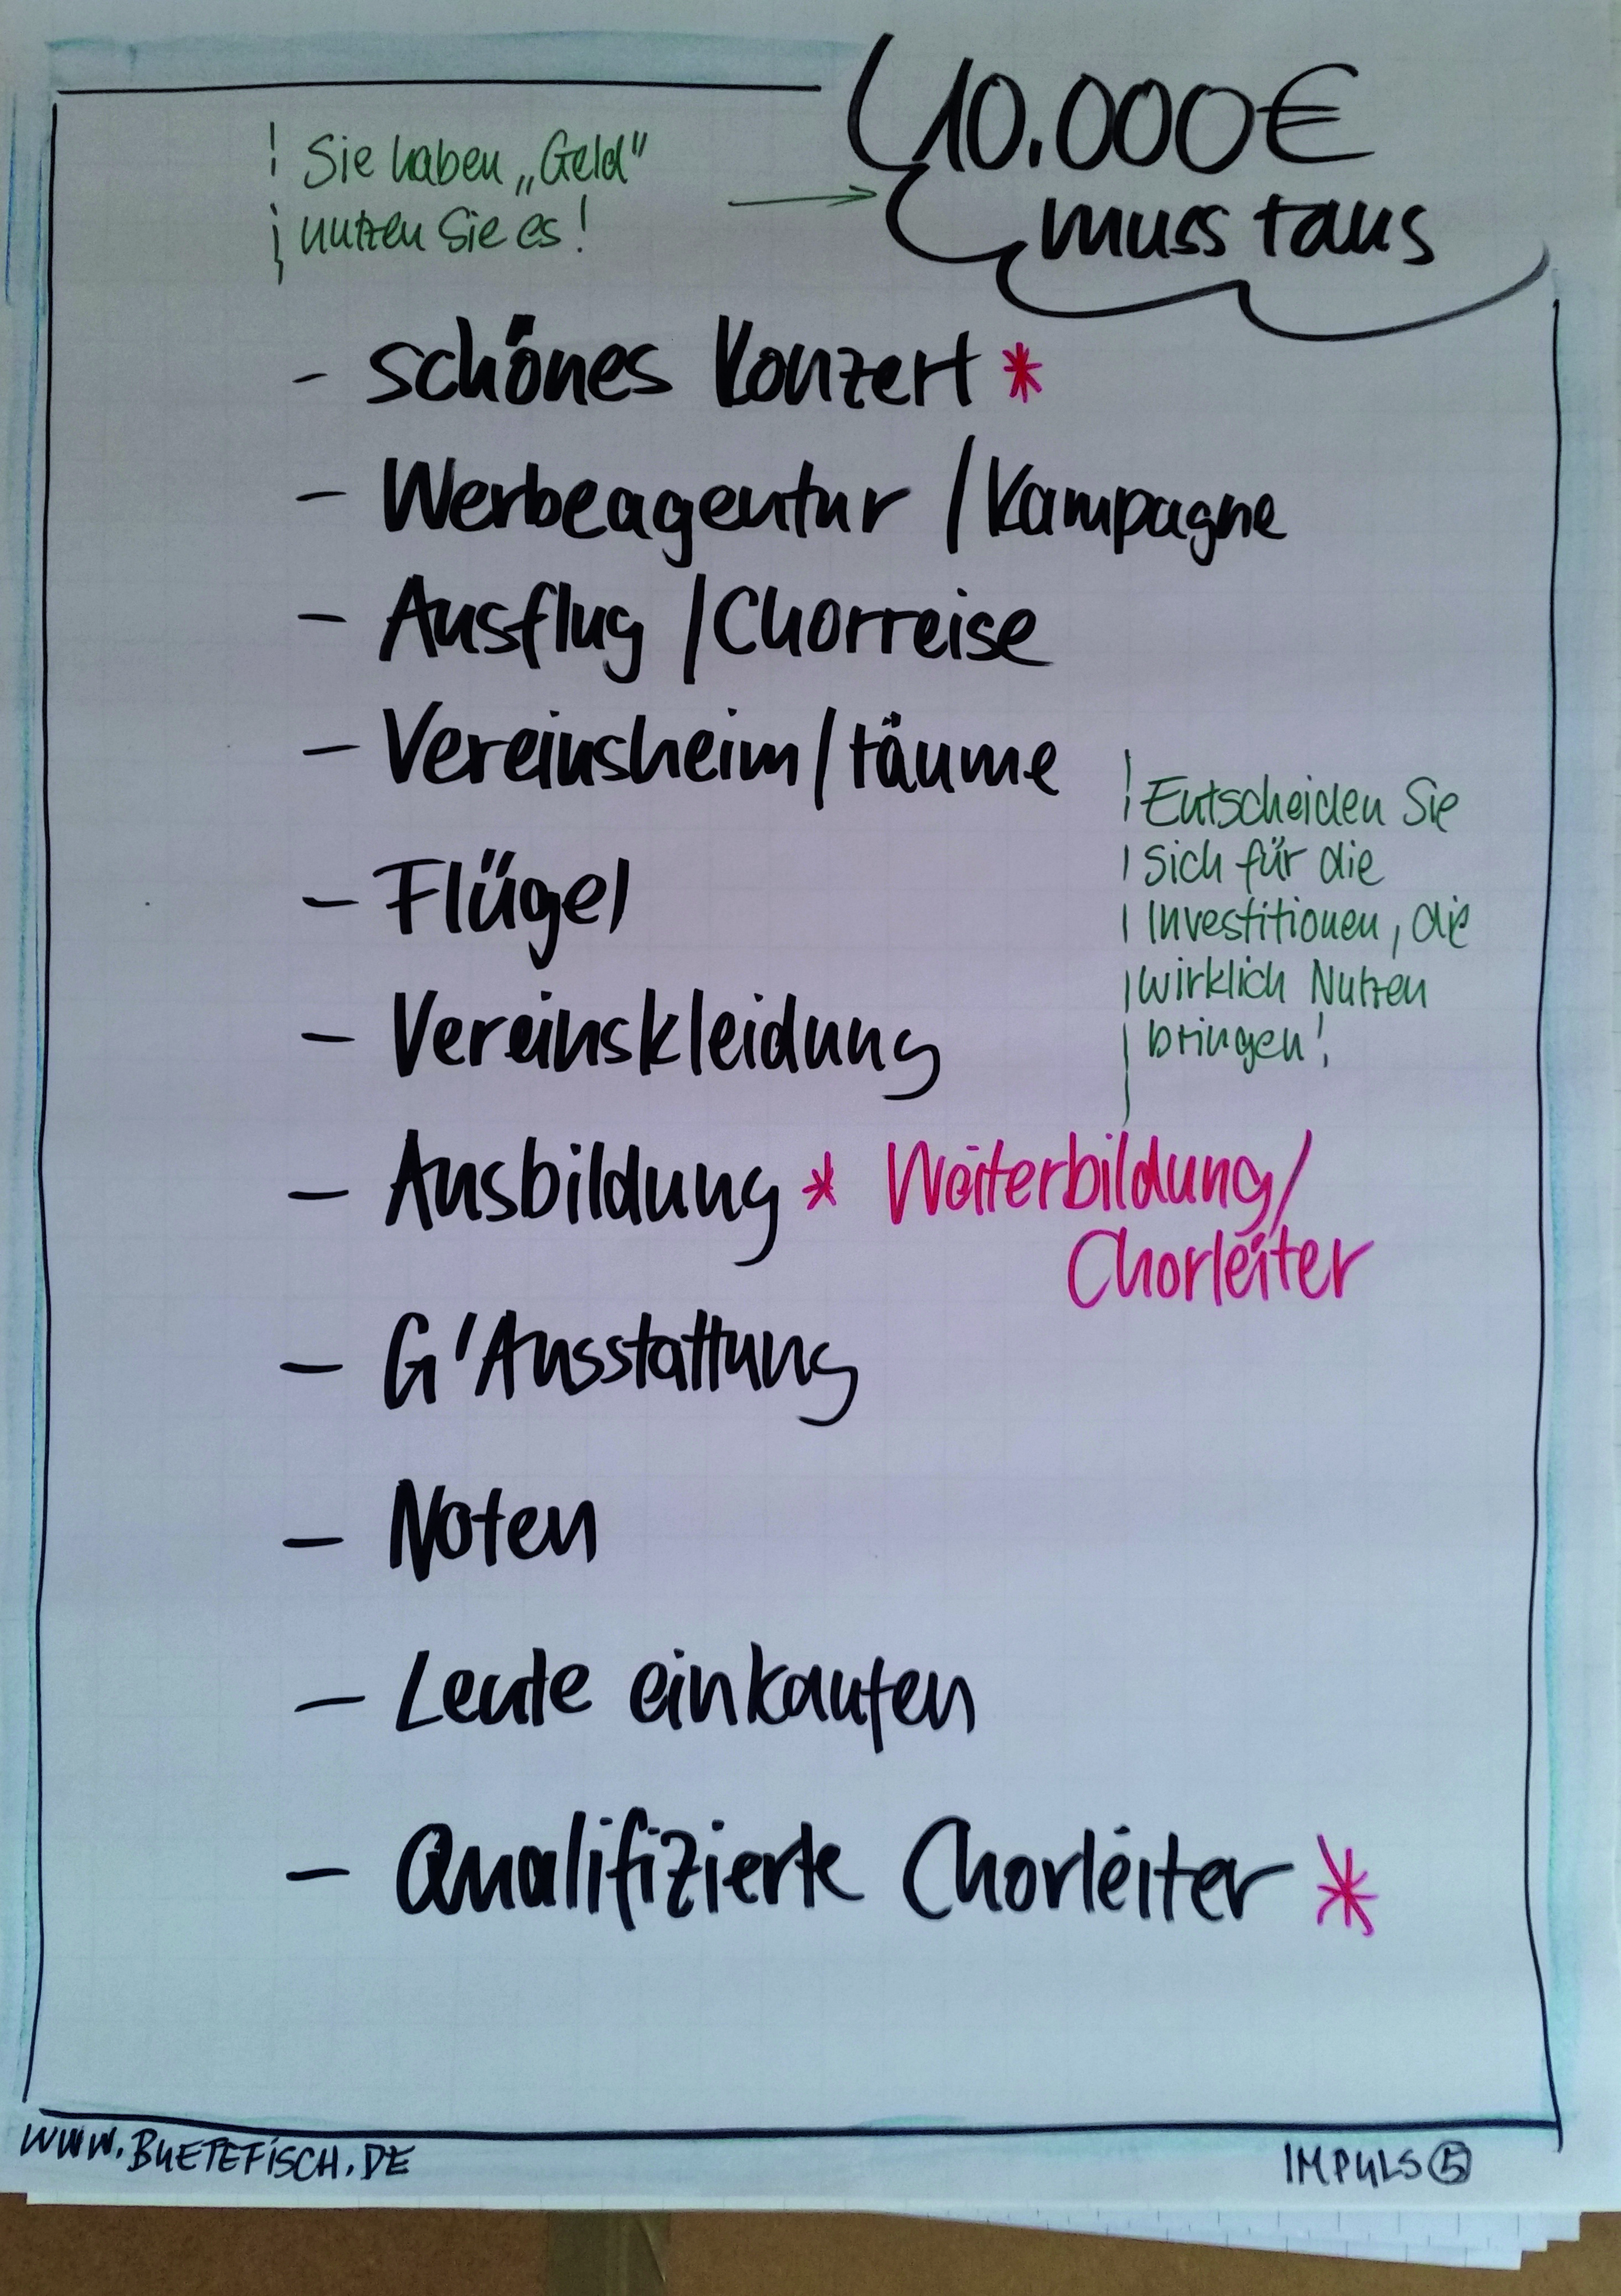 Sie haben „Geld"
nutzen Sie es!
10.000€
muss raus
- schönes Konzert *
- Werbeagentur / Kampagne
- Ausflug / Chorreise
- Vereinsheim / räume
- Flügel
- Vereinskleidung
Entscheiden Sie
sich für die
Investitionen, die
wirklich Nutzen
bringen!
- Ausbildung * Weiterbildung/
Chorleiter
- G'Ausstattung
- Noten
- Leute einkaufen
- Qualifizierte Chorleiter *
WWW.BUETEFISCH.DE
IMPULS 5